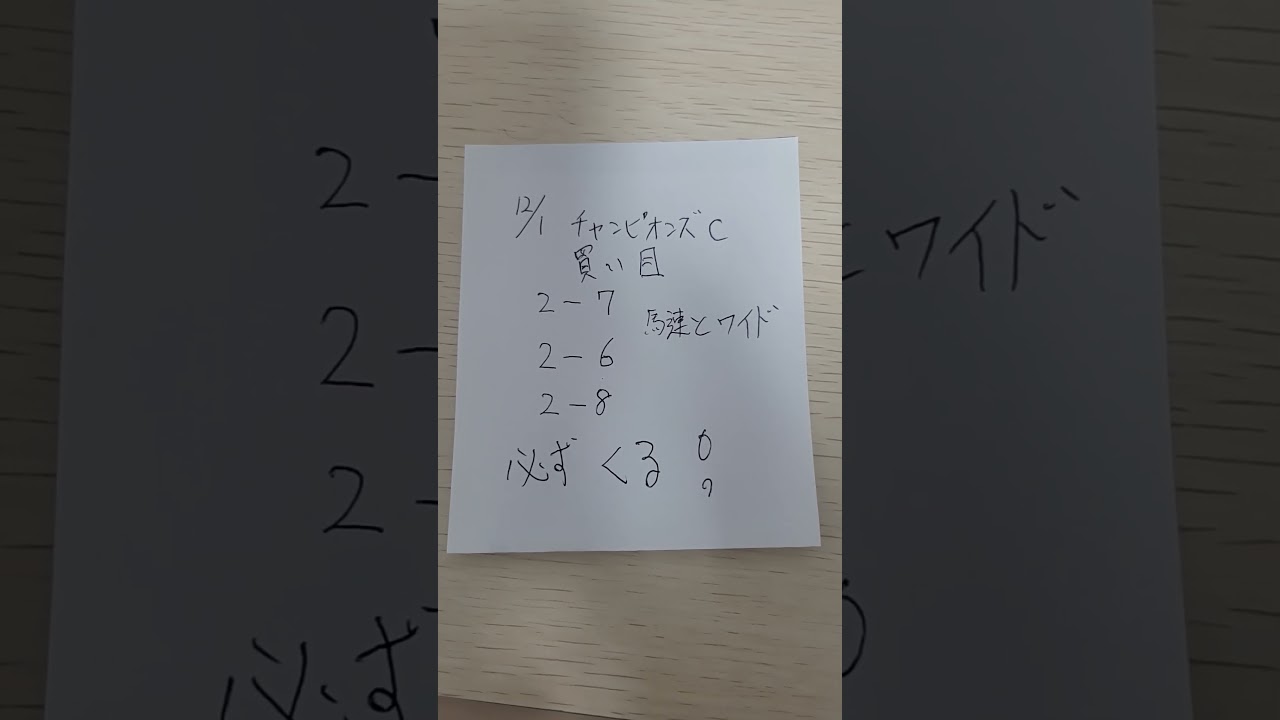 12/1 チャンピオンズC
買い目
2-7
馬連とワイド
2-6
2-8
必ずくる!